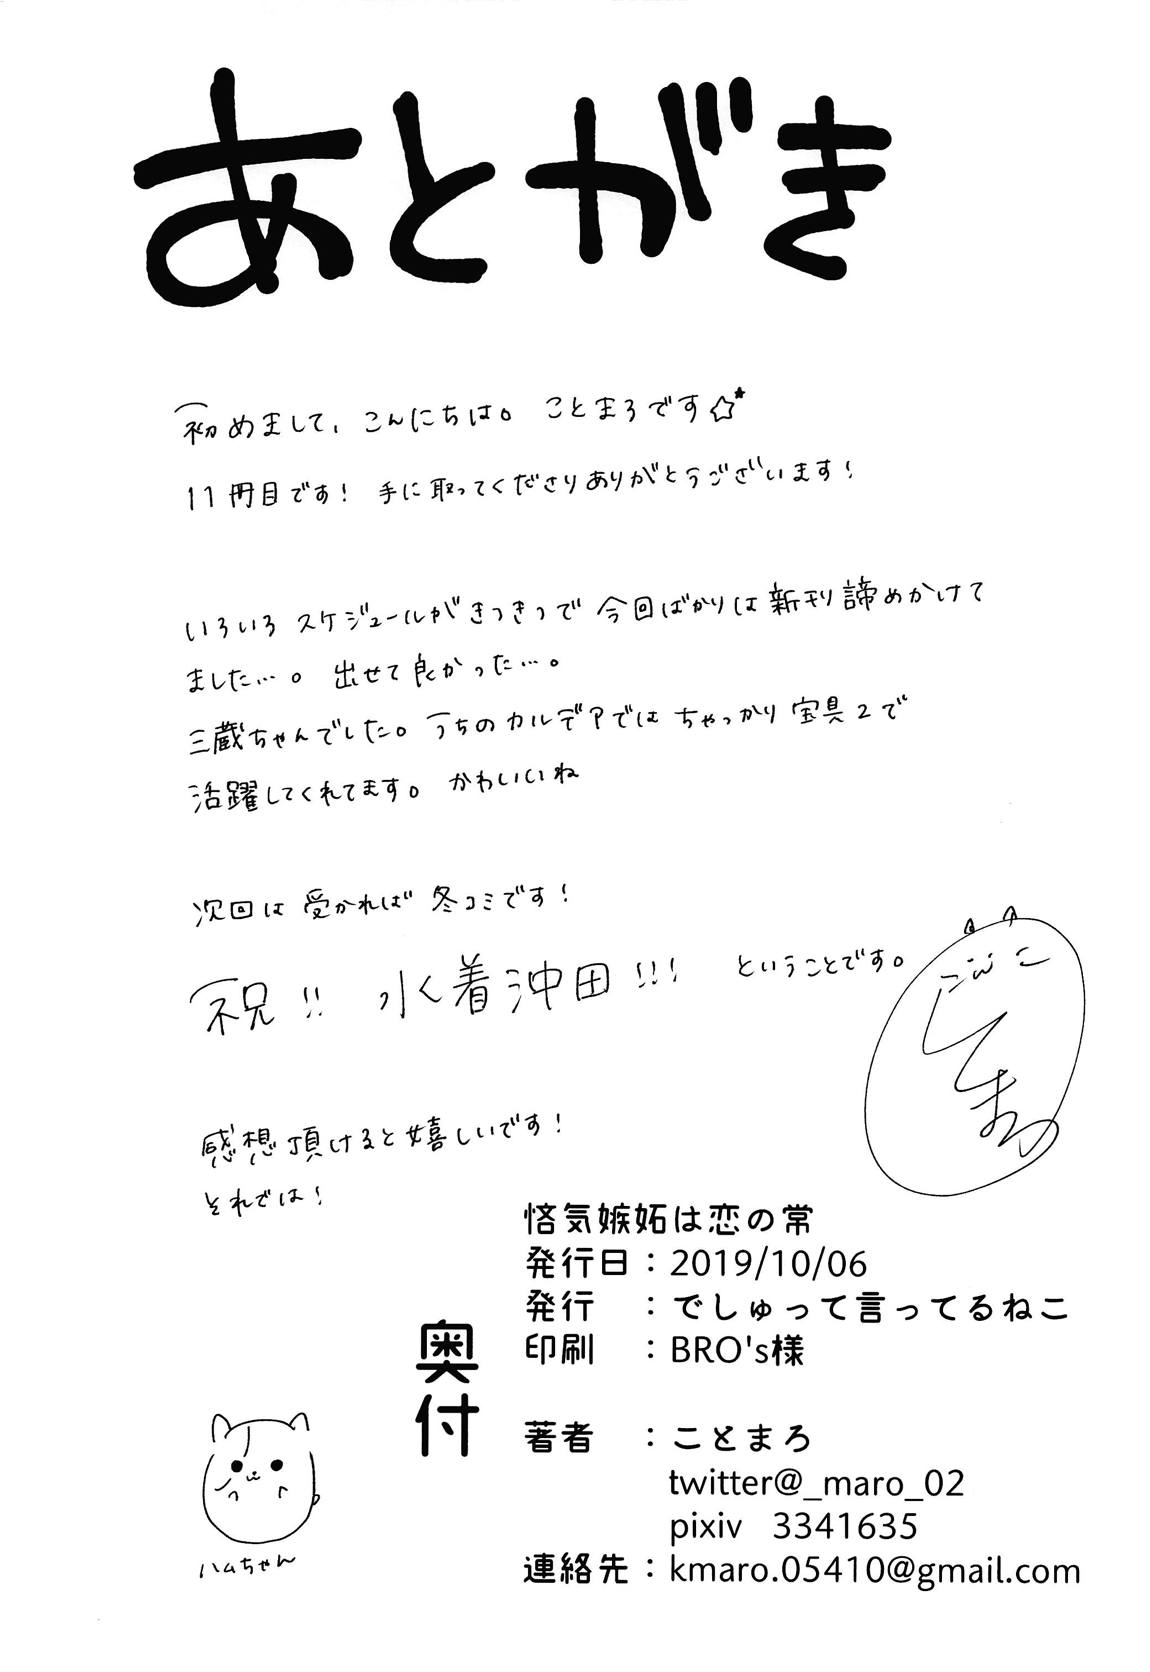 あとがき
初めまして、こんにちは。ことまろです☆★
11冊目です! 手に取ってくださりありがとうございます!
いろいろ スケジュールがきつきつで 今回ばかりは新刊諦めかけて
ました…。 出せて良かった…。
三蔵ちゃんでした。うちのカルデアではちゃっかり宝具2で
活躍してくれてます。 かわいいね
次回は 受かれば 冬コミです!
祝!! 水着沖田!!! ということです。
感想頂けると嬉しいです!
それでは!
ハムちゃん
奥付
悋気嫉妬は恋の常
発行日:2019/10/06
発行 :でしゅって言ってるねこ
印刷 :BRO's様
著者 :ことまろ
twitter@_maro_02
pixiv 3341635
連絡先:kmaro.05410@gmail.com